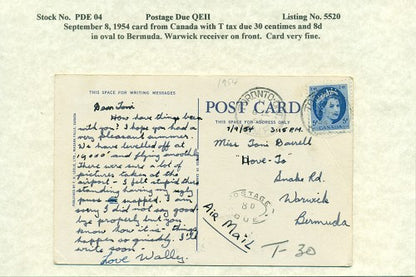 Stock No. PDE 04 Postage Due QEII Listing No. 5520
September 8, 1954 card from Canada with T tax due 30 centimes and 8d
in oval to Bermuda. Warwick receiver on front. Card very fine.
1954
THIS SPACE FOR WRITING MESSAGES
POST CARD
THIS SPACE FOR ADDRESS ONLY
TORONTO
CANADA
Dear Toni
How have things been
with you? I hope you had a
very pleasant summer.
We have levelled off at
19,000' and flying smoothly
There were six a lot of
pictures taken at the
airport - I felt stupid there
standing having my ugly
puss snapped. I am
sorry I did not say good
bye properly but you
know how it is - things
happen so quickly. I'll
write soon.
Love Wally.
7/9/54 3:15 P.M.
Miss Toni Darrell
"Hove-To"
Snake Rd.
Warwick
Bermuda
POSTAGE
8D
DUE
Air Mail
T-30